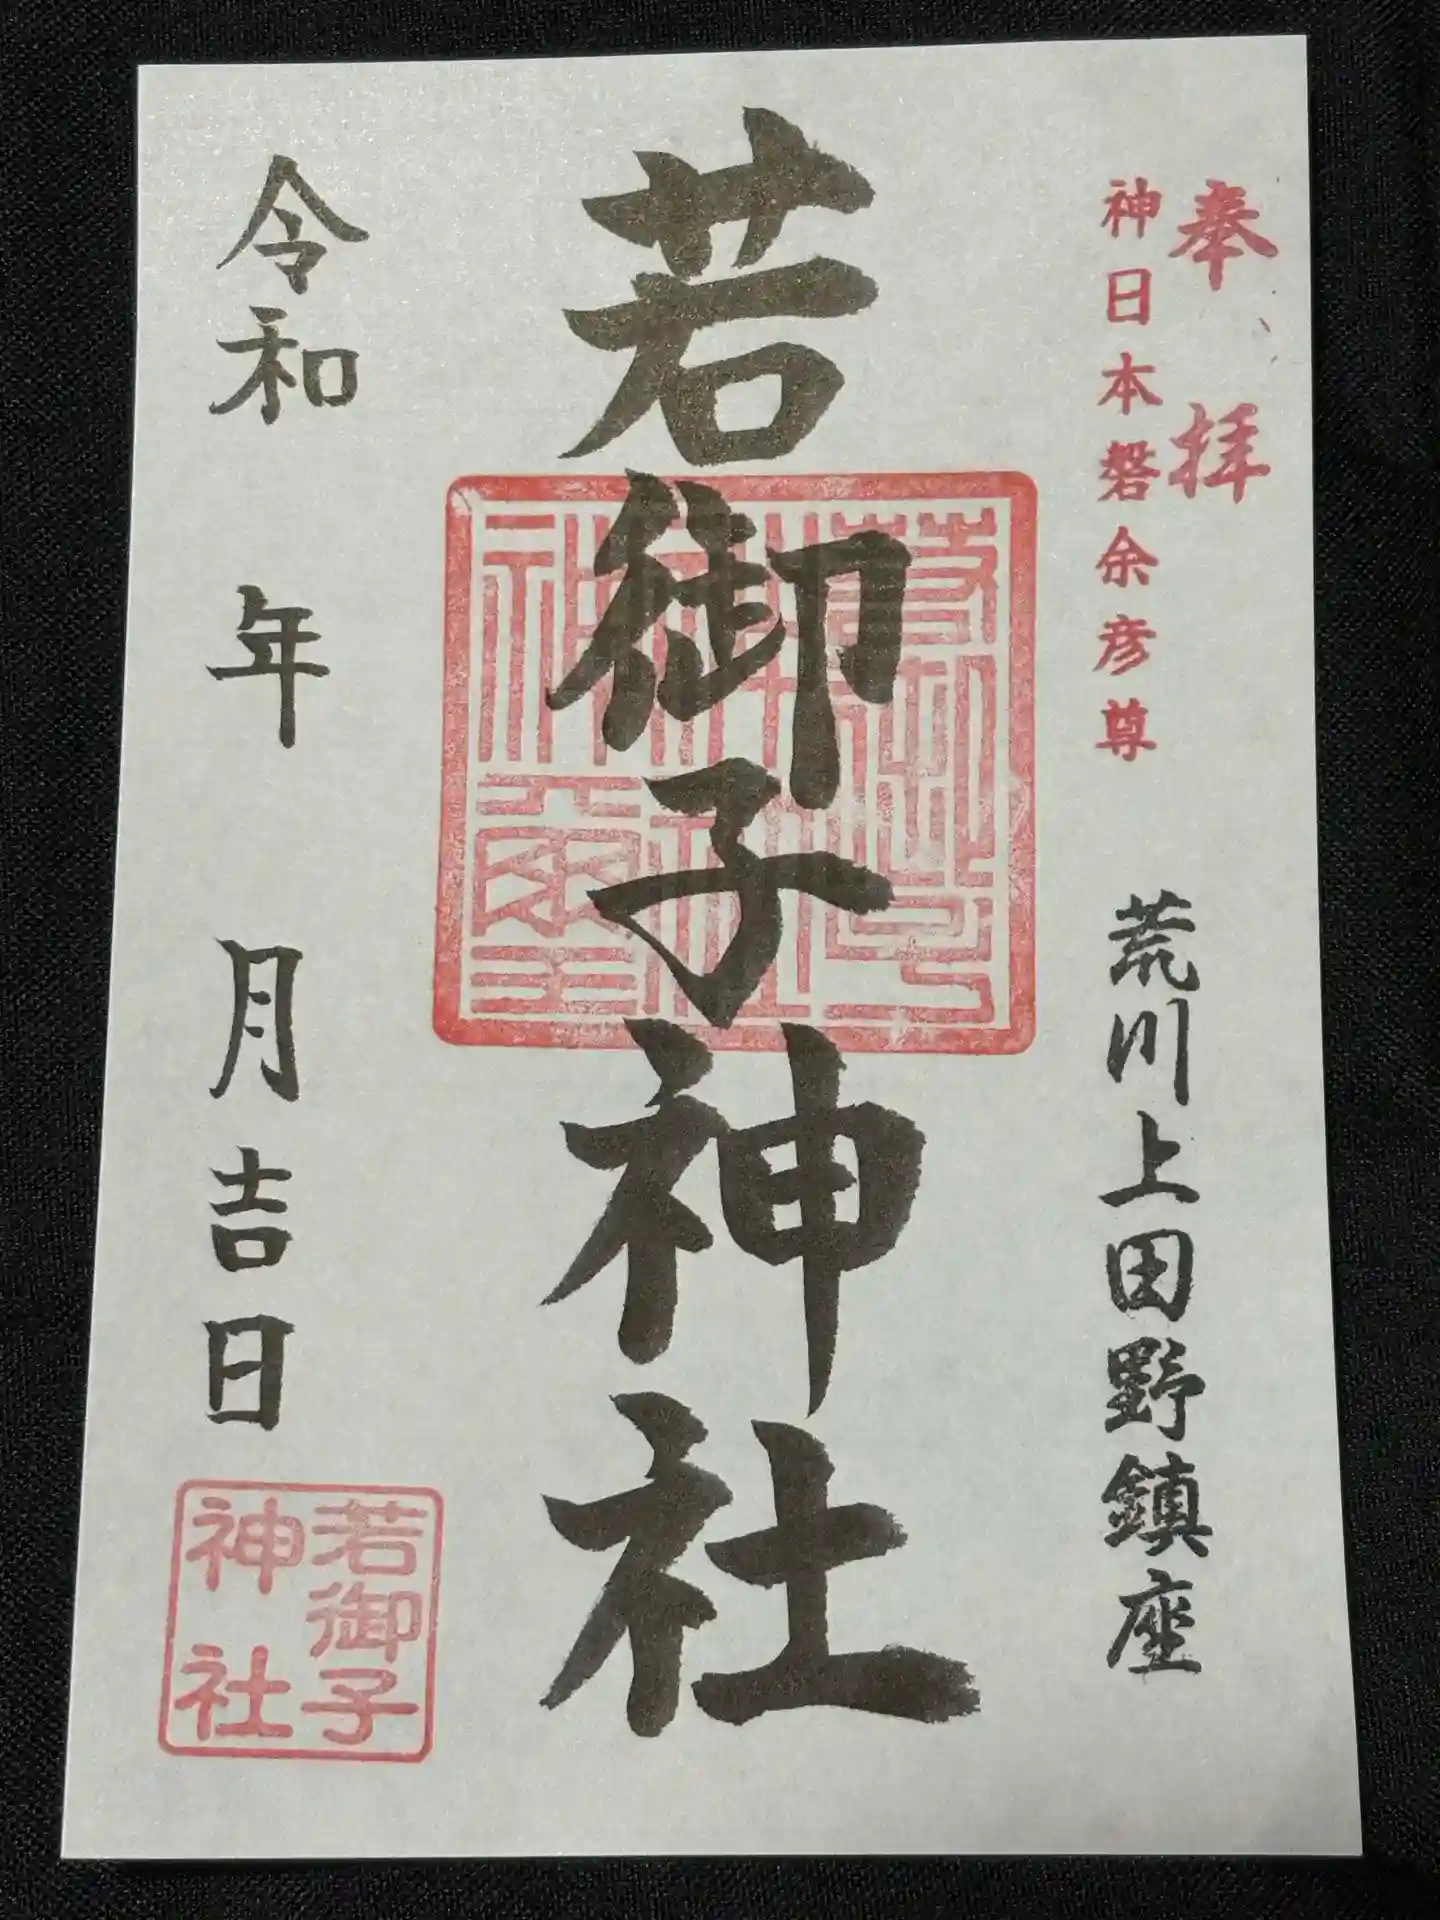 奉拝
神日本磐余彦尊
荒川上田野鎮座
若御子神社
令和 年 月吉日
若御子
神社